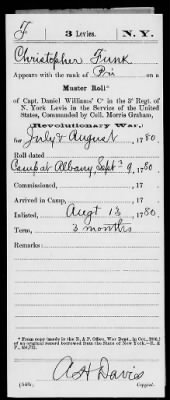 F
3 Levies. N. Y.
Christopher Funk
Appears with the rank of Pri on a
Muster Roll*
of Capt. Daniel Williams' Co in the 3d Regt. of
N. York Levis in the Service of the United
States, Commanded by Coll. Morris Graham,
(Revolutionary War,)
for July & August, 1780.
Roll dated
Camp at Albany, Sept. 9, 1780.
Commissioned, , 17 .
Arrived in Camp, , 17 .
Inlisted, Augt 13, 1780.
Term, 3 months
Remarks:
*From copy (made in the R. & P. Office, War Dept., in Oct.,
of an original record borrowed from the State of New York.—R. &
A H Davis
Copyist.